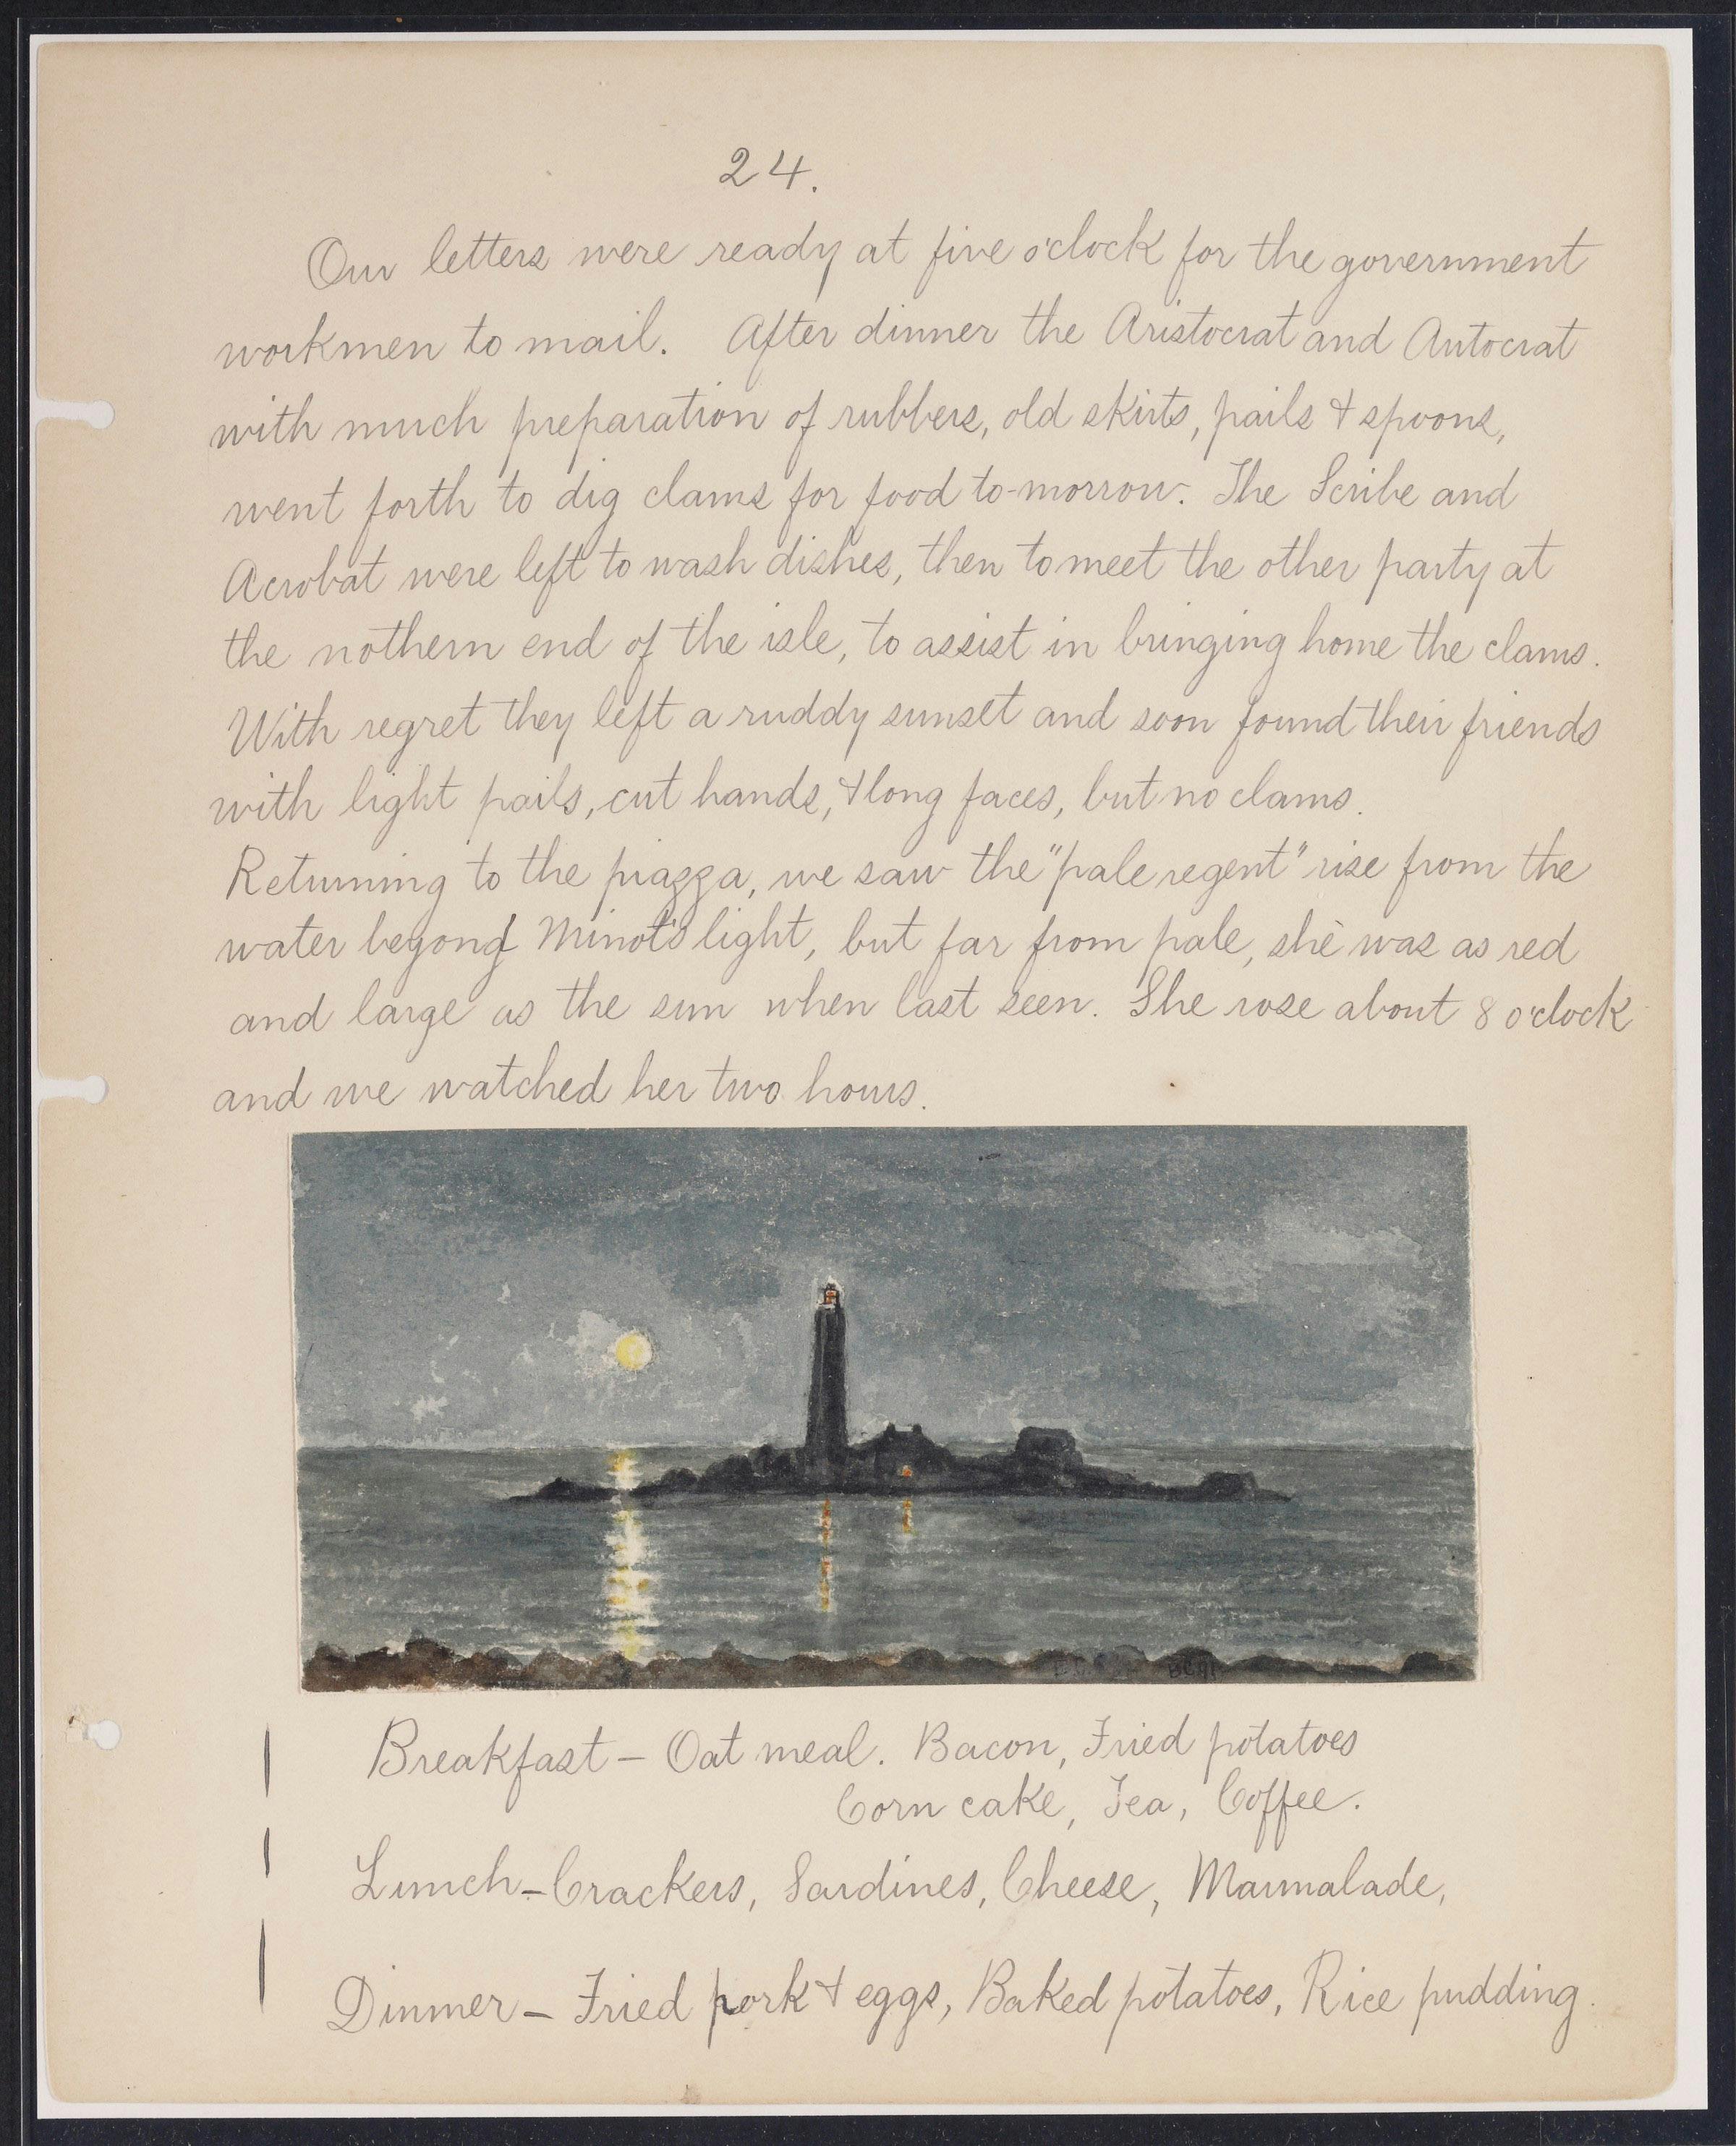 24.
Our letters were ready at five o'clock for the government
workmen to mail. After dinner the Aristocrat and Autocrat
with much preparation of rubbers, old skirts, pails & spoons,
went forth to dig clams for food to-morrow. The Scribe and
Acrobat were left to wash dishes, then to meet the other party at
the nothern end of the isle, to assist in bringing home the clams.
With regret they left a ruddy sunset and soon found their friends
with light pails, cut hands, & long faces, but no clams.
Returning to the piazza, we saw the "pale regent" rise from the
water beyond Minot's light, but far from pale, she was as red
and large as the sun when last seen. She rose about 8 o'clock
and we watched her two hours.
Breakfast – Oat meal. Bacon, Fried potatoes
Corn cake, Tea, Coffee.
Lunch – Crackers, Sardines, Cheese, Marmalade,
Dinner – Fried pork & eggs, Baked potatoes, Rice pudding.